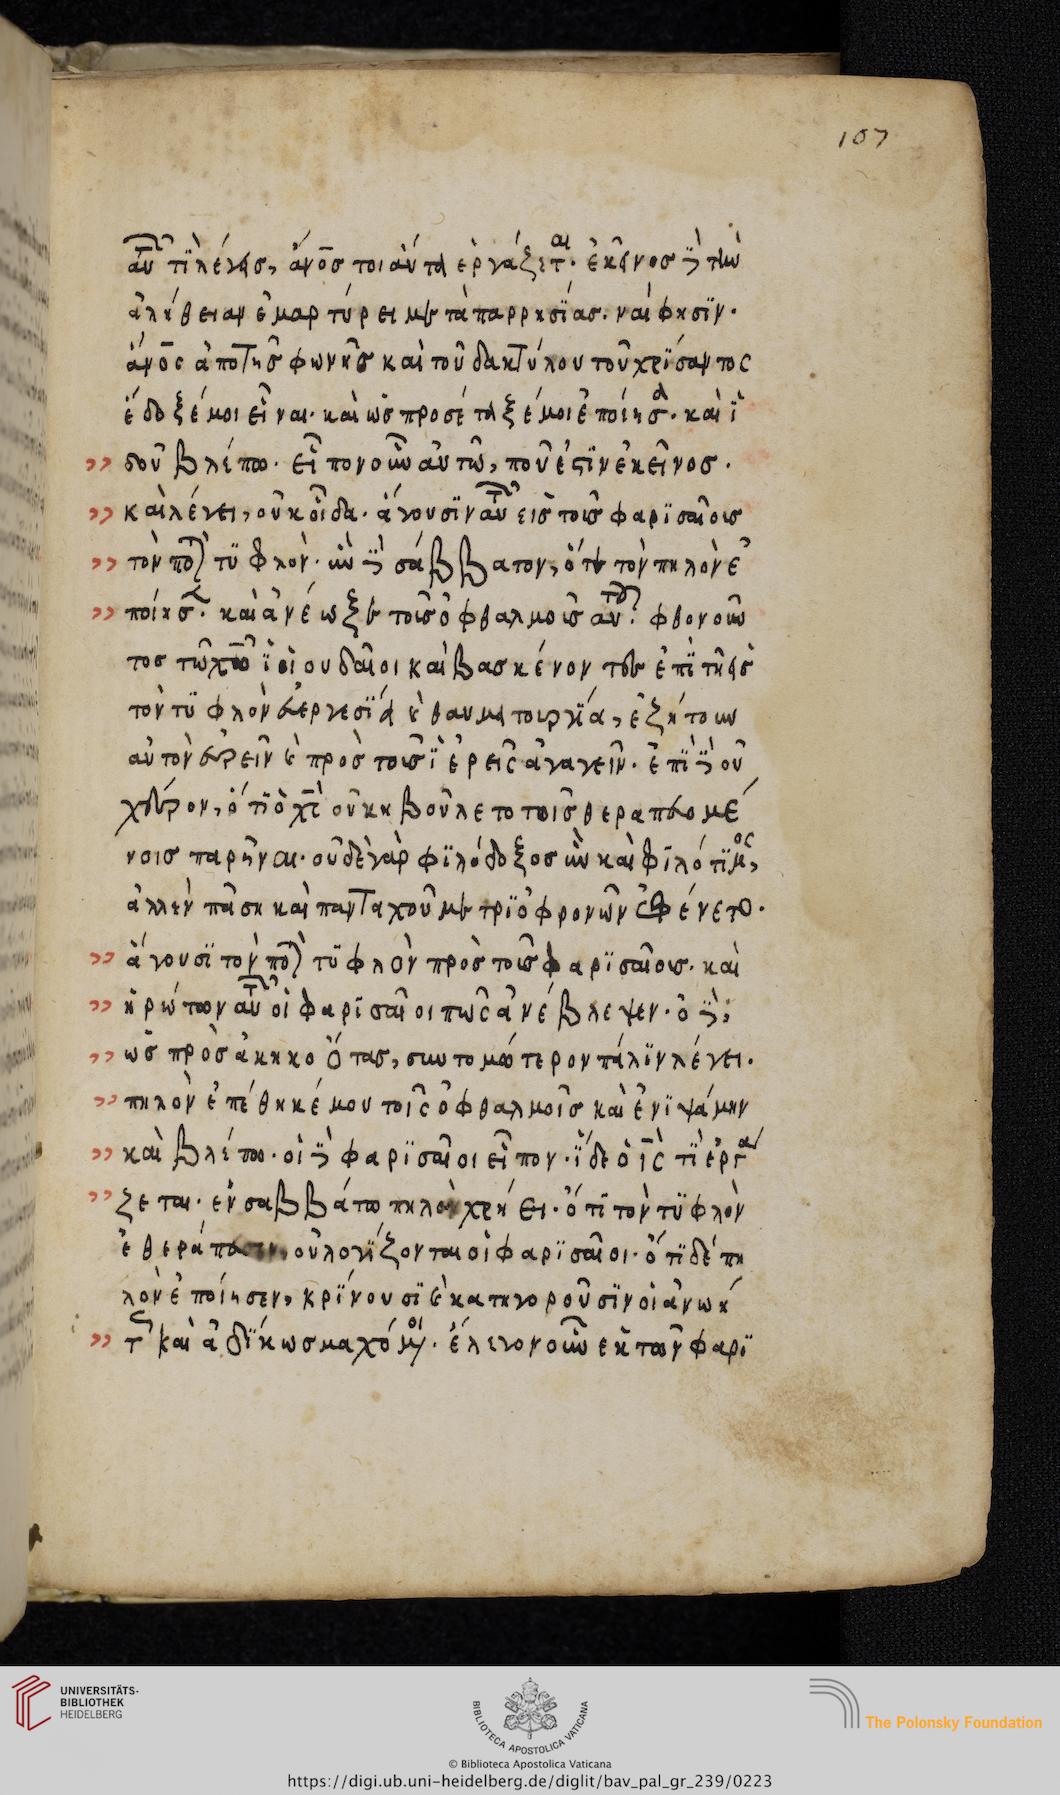 107
αὐτ τί λέγεις, ἄνος τοιαῦτα ἐργάζεται. ἐκεῖνος δὲ τὴν
ἀλήθειαν ἐμαρτύρει μετὰ παρρησίας. ναί φησϊν.
ἄνος ἀπο τῆς φωνῆς καὶ τοῦ δακτύλου τοῦ χρίσαντος
ἔδοξέ μοι εἶναι. καὶ ὡς προσέταξέ μοι ἐποίησα. καὶ ϊ
δοῦ βλέπω. εἶπον οὖν αὐτῶ, ποῦ ἐστϊν ἐκεῖνος.
καὶ λέγει, οὐκ οἶδα. ἄγουσϊν αὐτ εἰς τοὺς φαρϊσαίους
τὸν ποτ τϋφλόν. ἦν δὲ σάββατον, ὅτε τὸν πηλὸν ἐ
ποίησε. καὶ ἀνέωξε τοὺς ὀφθαλμοὺς αὐτοῦ. φθονοῦν
τος τῶ χῶ ϊοἱ ουδαῖοι καὶ βασκένοντες ἐπὶ τῆ εἰς
τὸν τϋφλὸν εὐεργεσϊα καὶ θαυματουργία, ἐζήτουν
αὐτὸν εὑρεῖν καὶ πρὸς τοὺς ϊερεῖς ἀγαγεῖν. ἐπϊ δὲ οὐ
χεῦρον, ὅτϊ ὁ χς οὐκ ηβούλετο τοῖς θεραπευομέ
νοις παρῆναι. οὐδὲ γὰρ φϊλόδοξος ἦν καὶ φϊλότϊμος,
ἀλλ' ἐν πᾶση καὶ πανταχοῦ μετρϊοφρονῶν ἐφένετο.
ἄγουσϊ τὸν ποτ τϋφλὸν πρὸς τοὺς φαρϊσαίους. καὶ
ἠρώτων αὐτ οἱ φαρϊσαῖοι πῶς ἀνέβλεψεν. ὁ δὲ,
ὡς πρὸς ἀκηκοότας, συντομώτερον πάλϊν λέγει.
πηλὸν ἐπέθηκέ μου τοῖς ὀφθαλμοῖς καὶ ἐνϊψάμην
καὶ βλέπω. οἱ δὲ φαρϊσαῖοι εἶπον. ϊδε ὁ ις τϊ ἐργά
ζεται. ἐν σαββάτω πηλὸν χρήει. ὅτϊ τὸν τϋφλὸν
ἐθεράπευσεν, οὐ λογϊζονται οἱ φαρϊσαῖοι. ὅτϊ δὲ πη
λὸν ἐποίησεν, κρίνουσϊ καὶ κατηγοροῦσϊν οἱ ἀνωή
τοι καὶ ἀδϊκως μαχόμενοι. ἔλεγον οὖν ἐκ τῶν φαρϊ
UNIVERSITÄTS-
BIBLIOTHEK
HEIDELBERG
BIBLIOTECA APOSTOLICA VATICANA
The Polonsky Foundation
© Biblioteca Apostolica Vaticana
https://digi.ub.uni-heidelberg.de/diglit/bav_pal_gr_239/0223